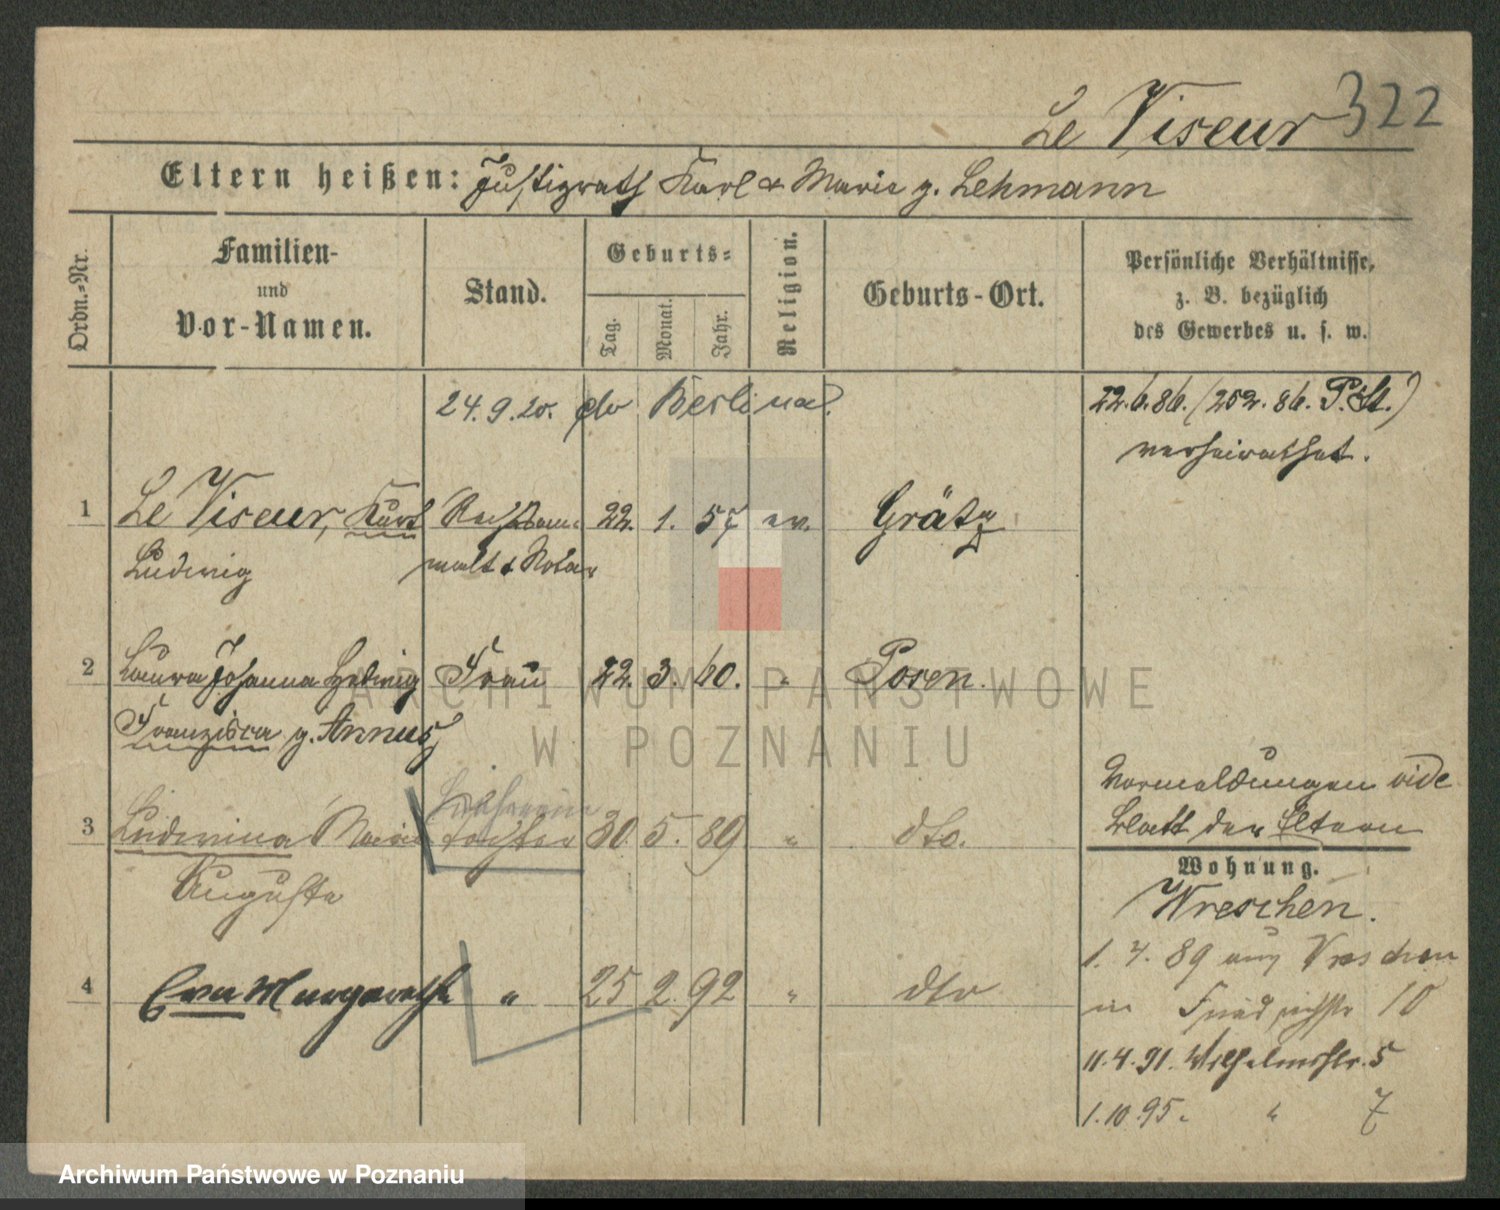 Le Viseur 322
Eltern heißen: Justizrath Karl & Marie g. Lehmann
Ordn.-Nr.
Familien-
und
Vor-Namen.
Stand.
Geburts-
Tag.
Monat.
Jahr.
Religion.
Geburts-Ort.
Persönliche Verhältnisse,
z. B. bezüglich
des Gewerbes u. s. w.
24.9.20.
22.6.86. (252.86. P. St.)
verheirathet.
1 Le Viseur, Kurt Rechtsan- 22. 1. 57 ev. Grätz
Ludwig walt & Notar
2 Laura Johanna Hedwig Frau 22. 3. 60. " Posen.
Franziska g. Annuß
Vormeldungen vide
Blatt der Eltern
3 Ludwina Marie Tochter 30. 5. 89 " dto.
Auguste
Wohnung.
Wreschen.
1. 4. 89 aus Wreschen
in Friedrichstr 10
4 Eva Margarethe " 25 2. 92 " dto
11.4.91. Wilhelmstr. 5
1.10.95. " 7
ARCHIWUM PAŃSTWOWE
W POZNANIU
Archiwum Państwowe w Poznaniu